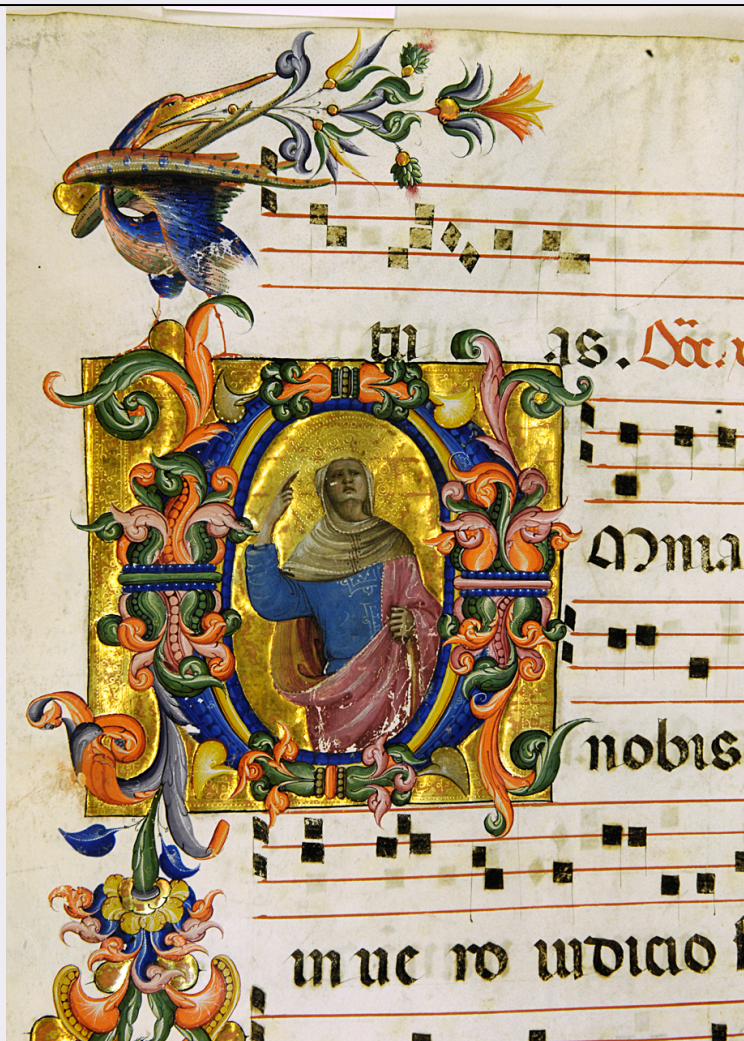 tu as. Dn̄ica x
Omnia
nobis
in ue ro iudicio